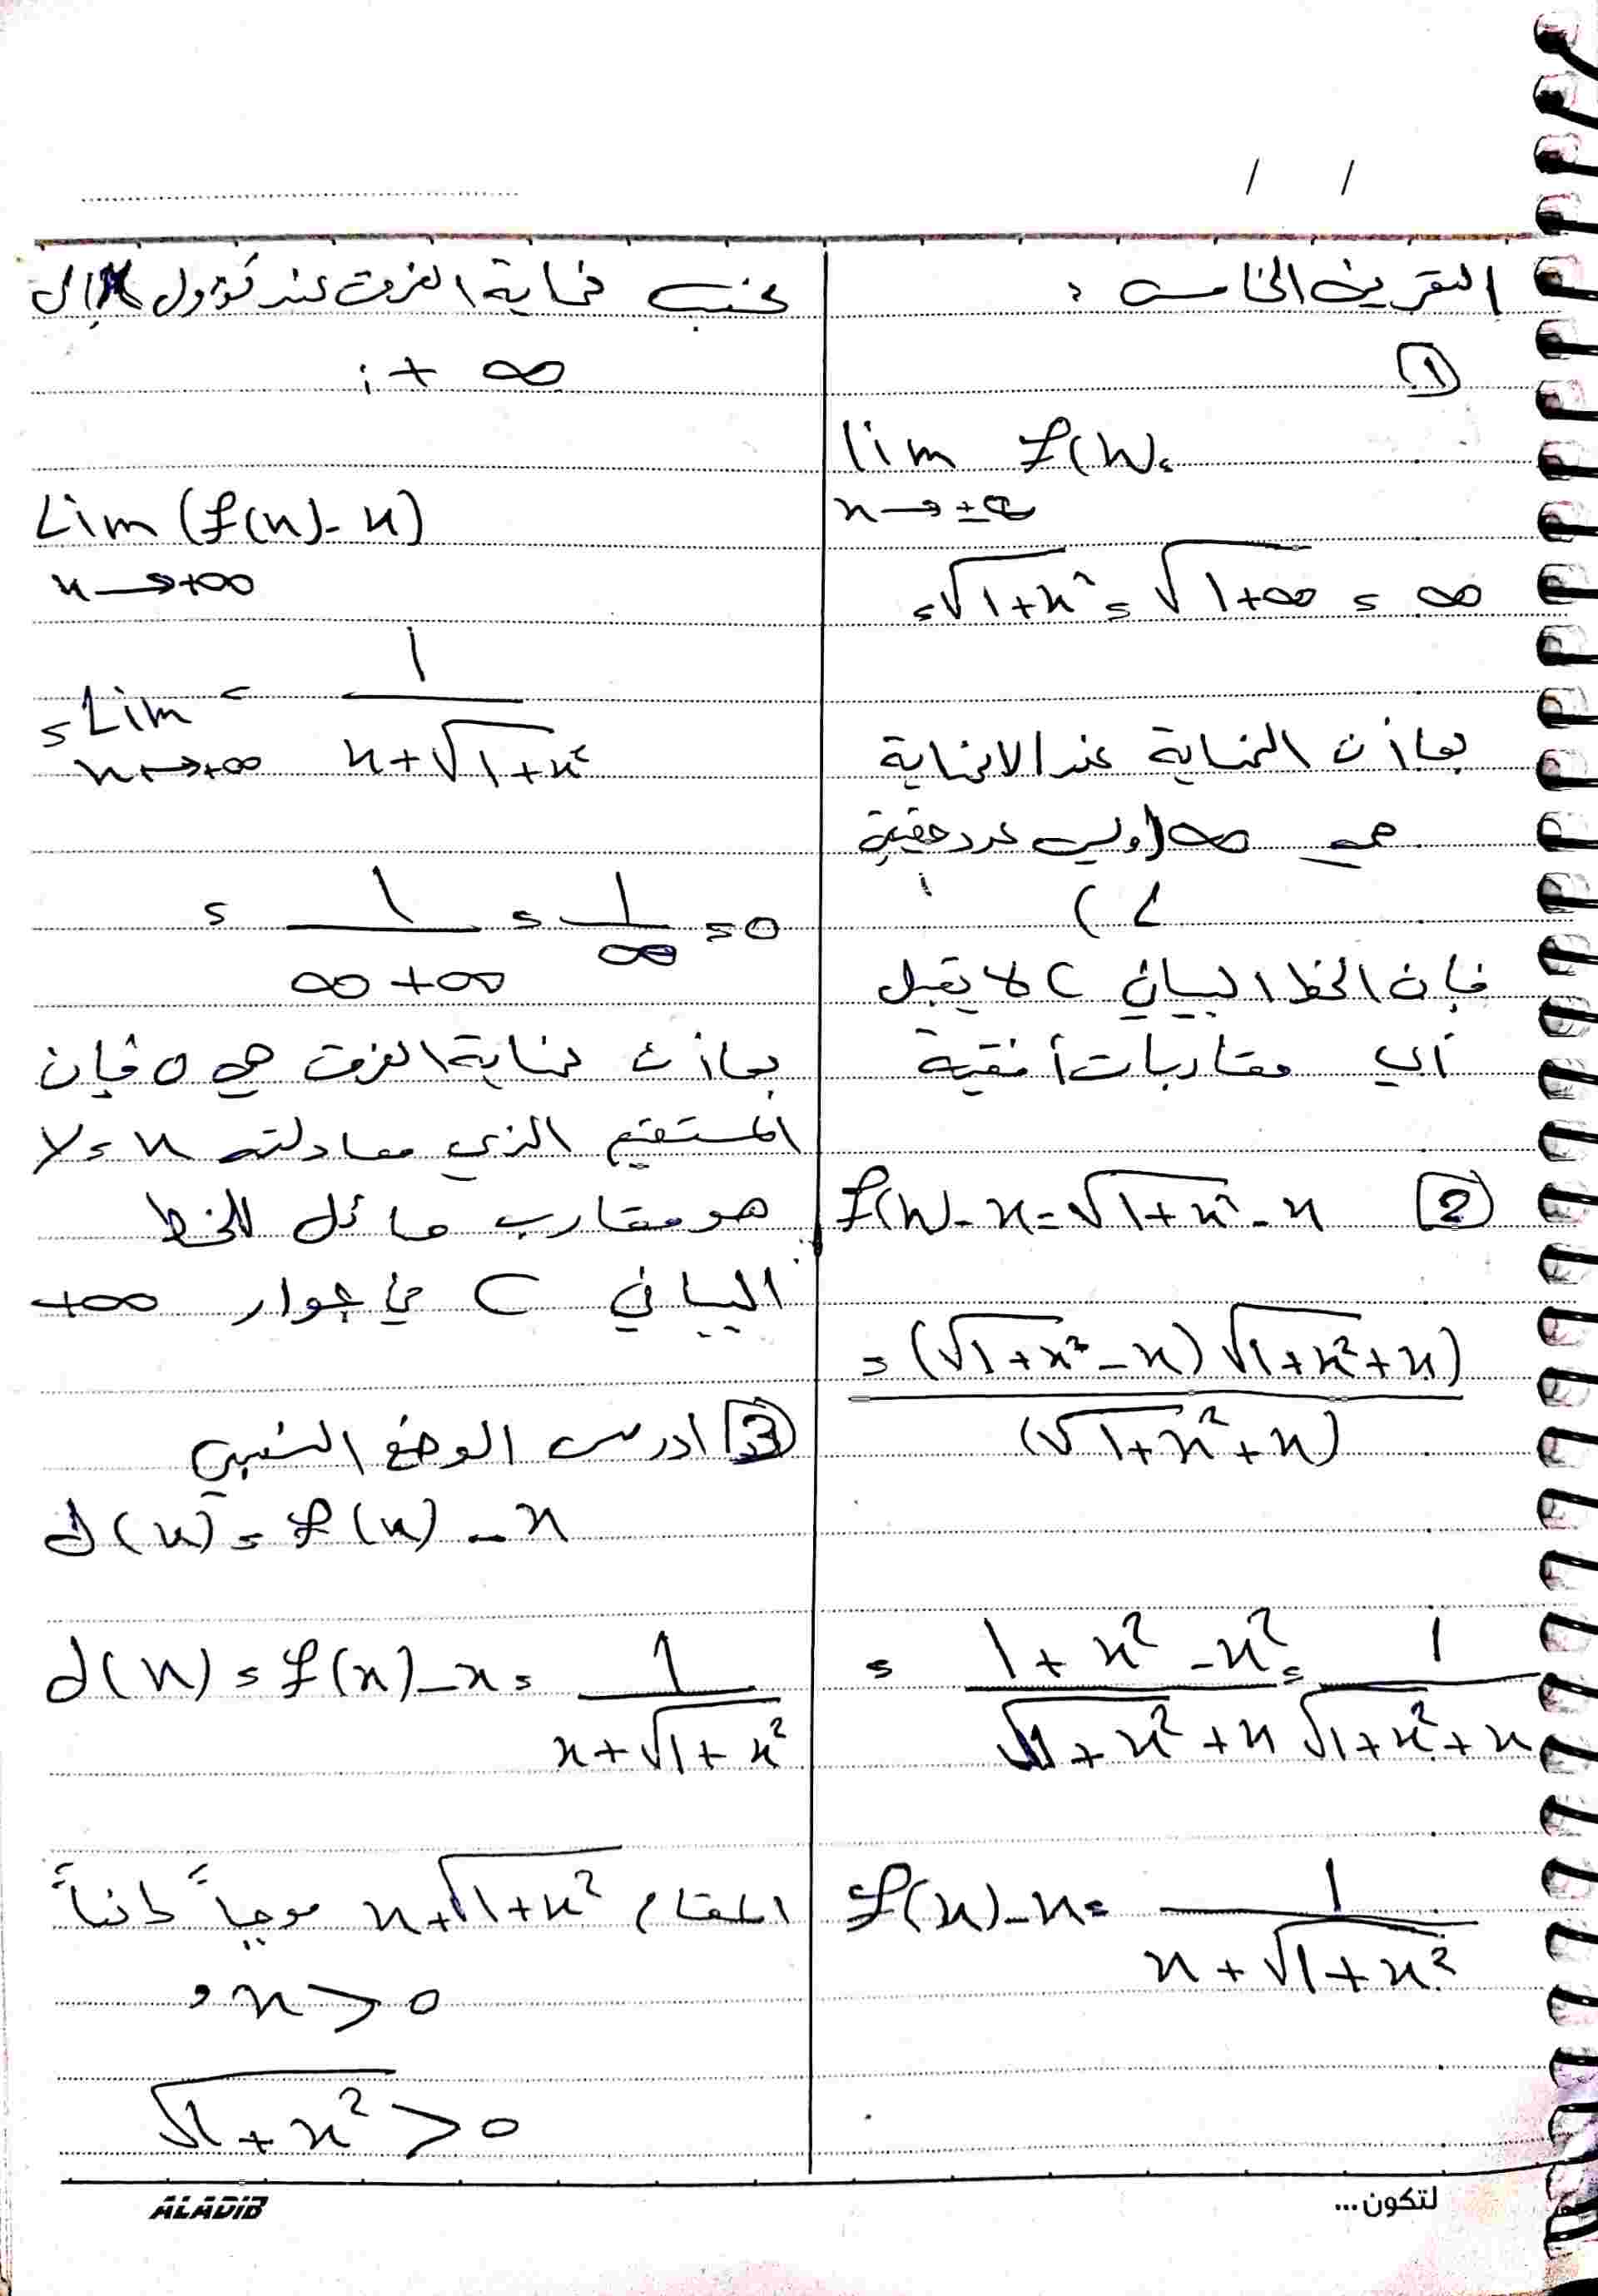 التمرين الخامس :
①
lim f(x) =
x → ±∞
= √1+x² = √1+∞ = ∞
بما أن النهاية عند الانهاية
هي ∞ (وليس عدد حقيقي
(L
فإن الخط البياني C لا يقبل
أي مقاربات أفقية
② f(x) - x = √1+x² - x
= (√1+x² - x) √1+x² + x)
(√1+x² + x)
= 1 + x² - x² = 1
√1+x² + x √1+x² + x
f(x) - x = 1
x + √1+x²
نحسب نهاية الفرق عند تؤول x إلى
+∞ :
Lim (f(x) - x)
x → +∞
= Lim = 1
x → +∞ x + √1+x²
= 1 = 1 = 0
∞ + ∞ ∞
بما أن نهاية الفرق هي 0 فإن
المستقيم الذي معادلته y = x
هو مقارب مائل للخط
البياني C في جوار +∞
③ ادرس الوضع النسبي
d(x) = f(x) - x
d(x) = f(x) - x = 1
x + √1+x²
المقام x + √1+x² موجباً
، x > 0
√1+x² > 0
لتكون...
ALADIB